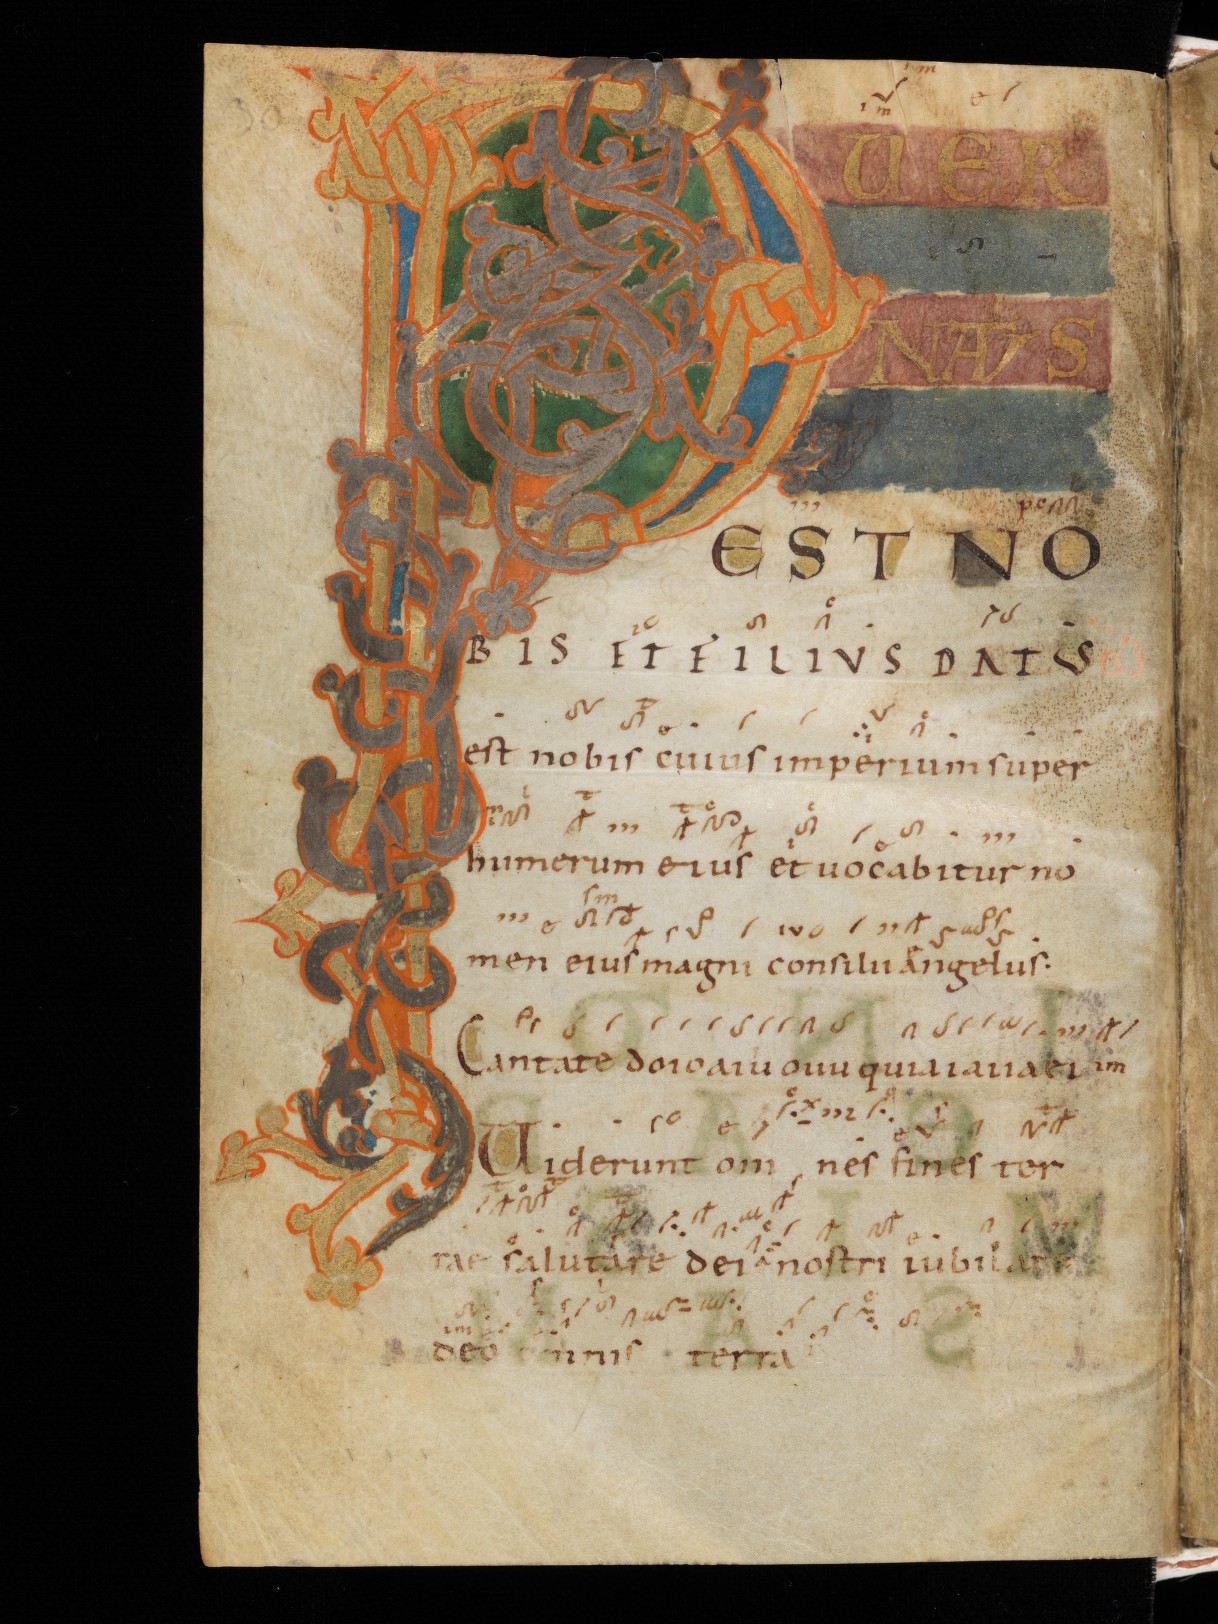 30
PUER
NATUS
EST NO
BIS ET FILIUS DATUS
est nobis cuius imperium super
humerum eius et uocabitur no
men eius magni consilii angelus·
Cantate
Uiderunt om nes fines ter
rae salutare dei nostri iubilate
deo omnis terra